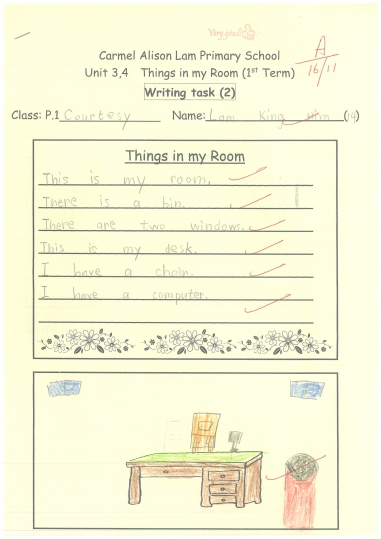 Very good!
Carmel Alison Lam Primary School
A
Unit 3,4 Things in my Room (1st Term)
16/11
Writing task (2)
Class: P.1 Courtesy Name: Lam King Him (14)
Things in my Room
This is my room.
There is a bin.
There are two windows.
This is my desk.
I have a chain.
I have a computer.